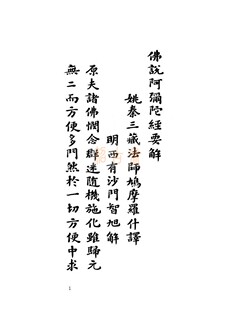 佛說阿彌陀經要解
姚秦三藏法師鳩摩羅什譯
明西有沙門智旭解
原夫諸佛憫念群迷隨機施化雖歸元
無二而方便多門然於一切方便中求
1